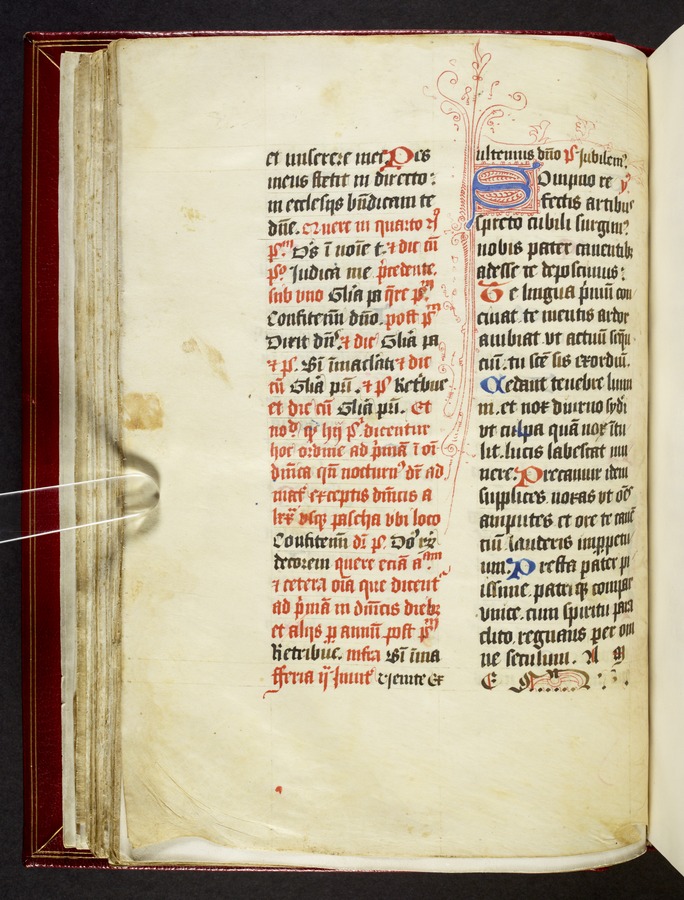 et miserere mei Pes
meus stetit in directo:
in ecclesiis bn̄dicam te
dn̄e. Require in quarto
ps. Ds̄ ī noīe t. ⁊ dic cū
ps. Judica me p̄cedente.
sub vno Gl̄ia pa q̄re ps.
Confitem̄ dn̄o. post ps.
Dixit dn̄s. ⁊ dic Gl̄ia pa
⁊ ps. Bī īmaclati ⁊ dic
cū Gl̄ia pr̄i. ⁊ ps. Retribue
et dic cū Gl̄ia pr̄i. Et
nod̄ q hij ps. dicentur
hoc ordine ad p̄mā ī oī
dn̄ica qn̄ nocturn̄ dr̄ ad
mat̄ exceptis dn̄icis a
lxx vsq pascha vbi loco
Confitem̄ dr̄ ps. Dō reg
decorem quere eciā a
⁊ cetera oīa que dicent̄
ad p̄mā in dn̄icis dieb
et aliis p annū post ps
Retribue. infra Bī īma
fferia ij Inuit̄ Venite Ex
ultemus dn̄o ps Jubilem
Sompno re
fectis artibus
spreto cubili surgim
nobis pater canentib
adesse te deposcimus:
Te lingua p̄mū con
cinat te mentis ardor
ambiat vt actuū sequ
ciū. tu sc̄e sis exordiū.
Cedant tenebre lumi
ni. et nox diurno sydi
vt culpa quā nox ītu
lit. lucis labescat mu
nere. Precamur idem
supplices noxas vt oēs
amputes et ore te canē
ciū lauderis inppetu
um. Presta pater pi
issime. patri q compar
vnice. cum spiritu para
clito. regnans per om
ne seculum. A M
E N